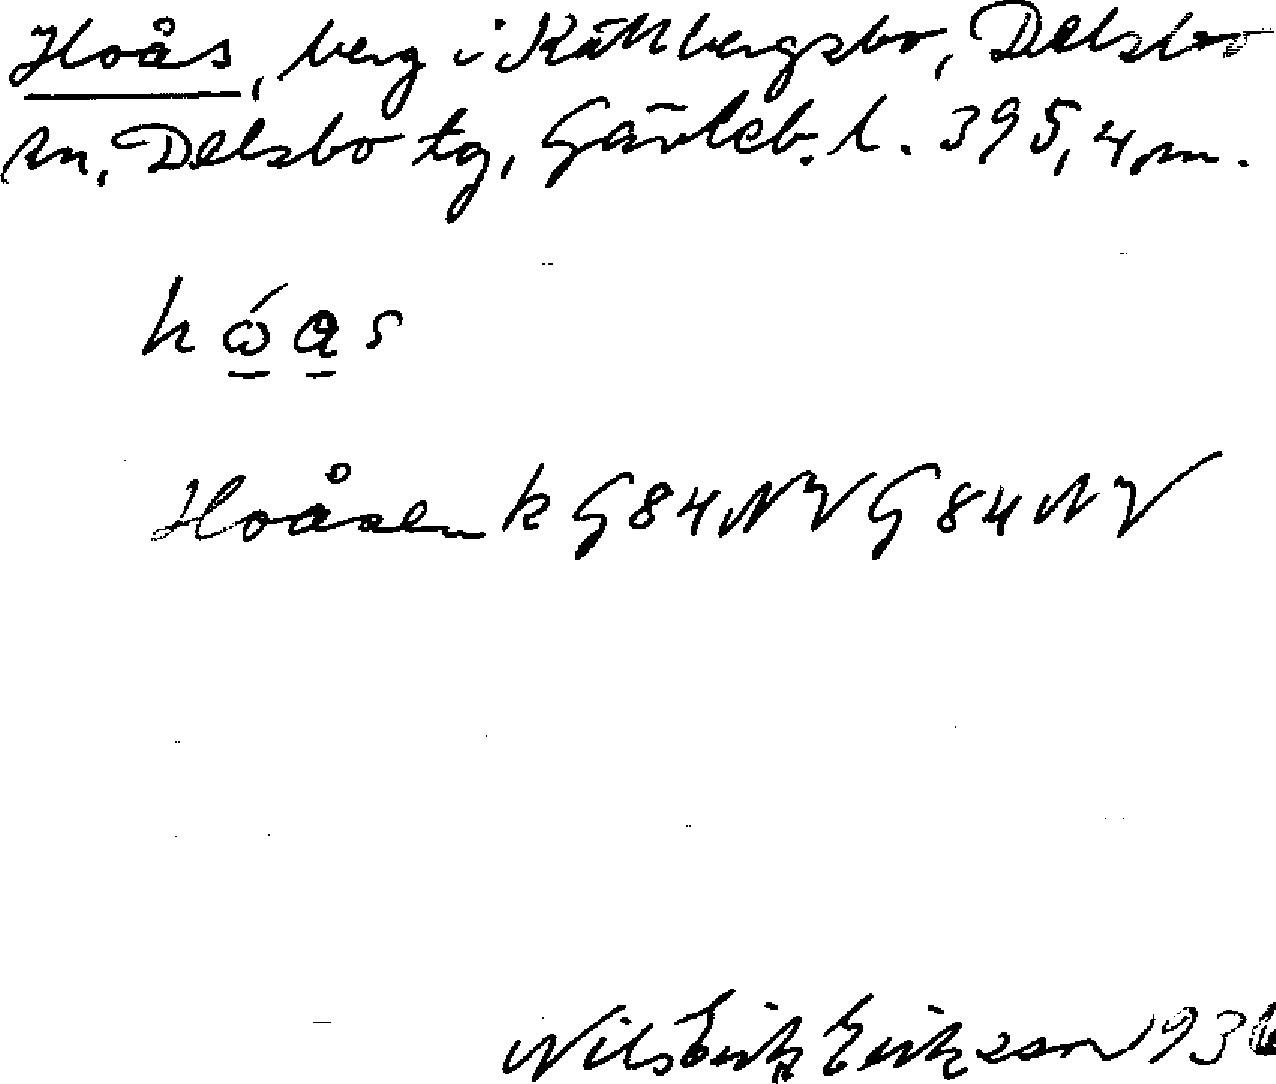 Hoås, berg i Källbergsbo, Delsbo
sn, Delsbo tg, Gävleb. l. 395,4 m.
hó̱a̱s
Hoåsen k G84NV G84NV
Nils Erik Eriksson 193